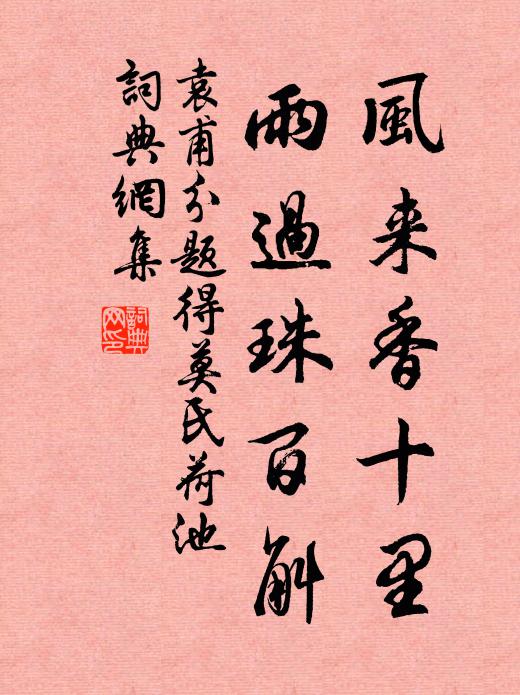 風来香十里
雨過珠百斛
袁甫分題得莫氏荷池
詞典網集
詞典網印